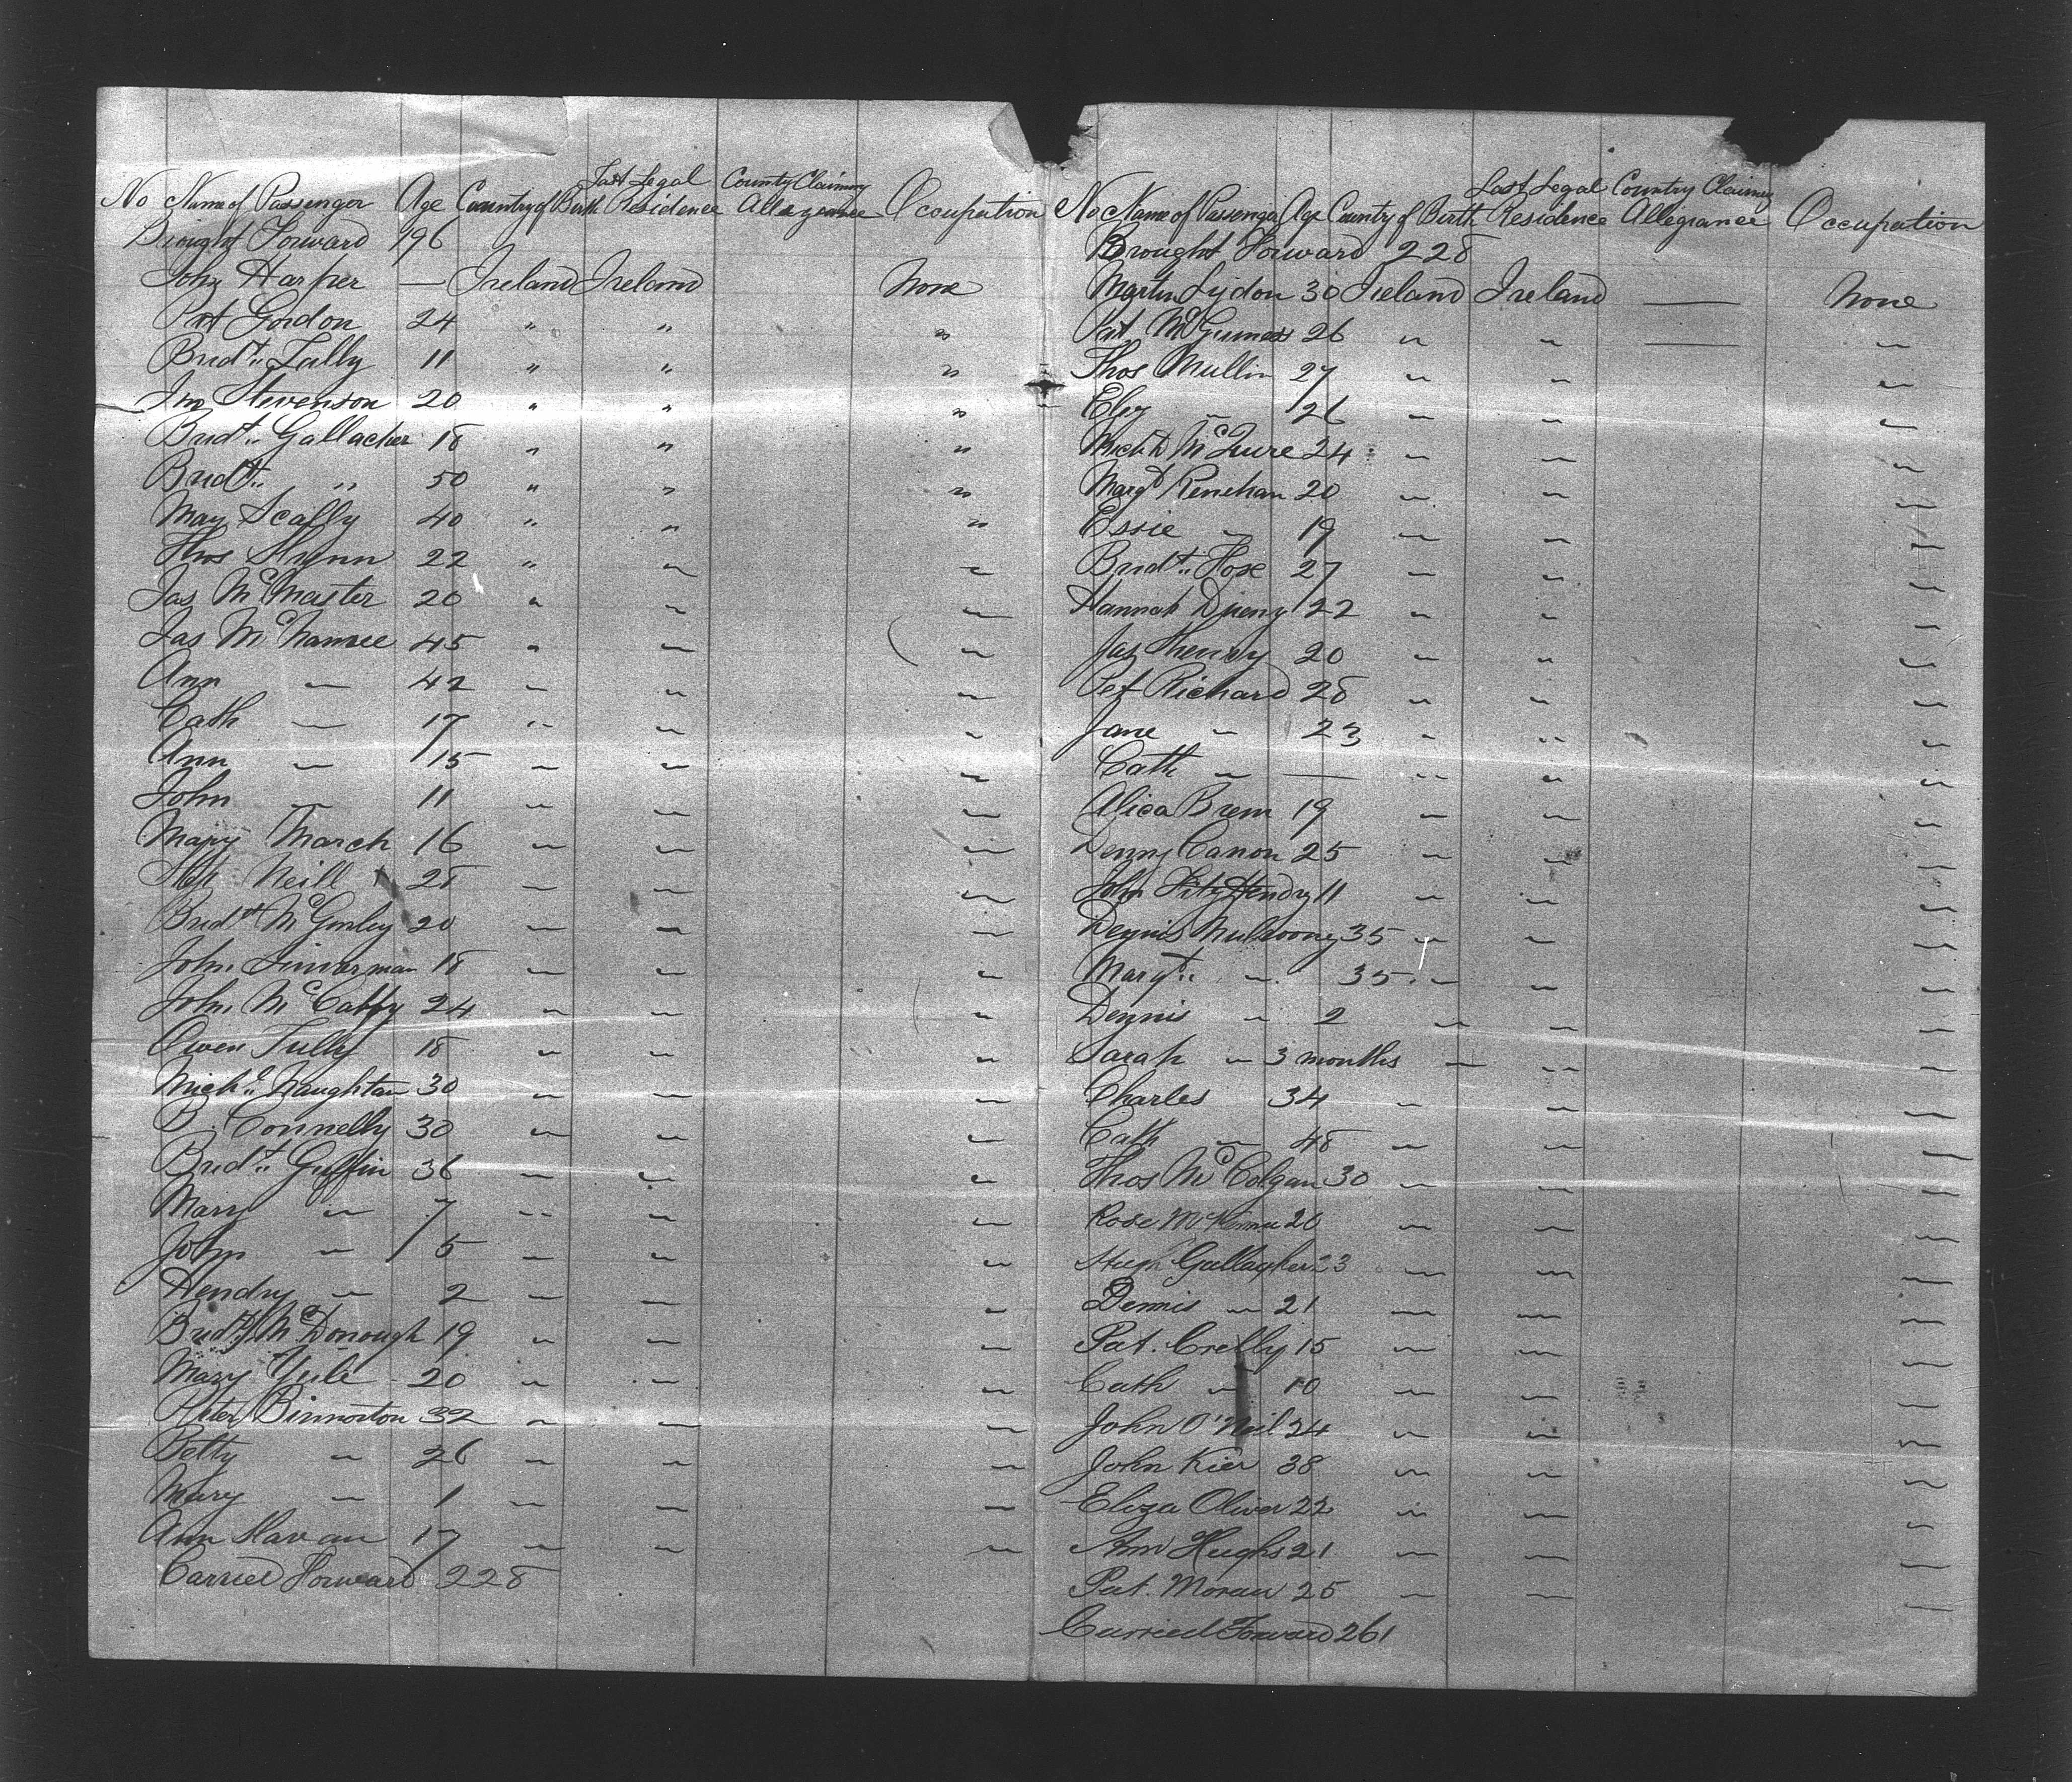 No Name of Passenger Age Country of Birth Last Legal Residence County Claiming Allegeance Occupation
Brought Forward 196
John Harper — Ireland Ireland None
Pat Gordon 24 " " "
Bridt. Lally 11 " " "
Jn Stevenson 20 " " "
Bridt. Gallacher 18 " " "
Bridt. " 50 " " "
May Scally 40 " " "
Thos Flynn 22 " " "
Jas McMaster 20 " " "
Jas McNamee 45 " " "
Ann — 42 " " "
Cath — 17 " " "
Ann — 15 " " "
John — 11 " " "
Mary March 16 " " "
Neill 28 " " "
Bridt McGinley 20 " " "
John 18 " " "
John McCaffy 24 " " "
Owen Tully 18 " " "
Michl. Naughtan 30 " " "
B. Connelly 30 " " "
Bridt. Guffin 36 " " "
Mary " 7 " " "
John " 5 " " "
Hendry " 2 " " "
Bridt. McDonough 19 " " "
Mary Yule 20 " " "
Peter Binnorton 32 " " "
Betty " 26 " " "
Mary " 1 " " "
Ann Havan 17 " " "
Carried Forward 228
No Name of Passenger Age Country of Birth Last Legal Residence Country Claiming Allegiance Occupation
Brought Forward 228
Martin Lydon 30 Ireland Ireland — None
Pat 26 " " — "
Thos Mullin 27 " " "
Eliz " 26 " " "
Mich McLure 24 " " "
Margt Renehan 20 " " "
Essie " 19 " " "
Bridt. Hose 27 " " "
Hannah 22 " " "
Jas Henry 20 " " "
Pet Richard 28 " " "
Jane " 23 " " "
Cath " — " " "
Alica Brem 19 " " "
Denny Canon 25 " " "
John Fitz Hendry 11 " " "
Dennis Mulrooney 35 " " "
Margt. " 35 " " "
Dennis " 2 " " "
Sarah " 3 months " " "
Charles 34 " " "
Cath " 48 " " "
Thos McColgan 30 " " "
Rose McKenna 20 " " "
Hugh Gallagher 23 " " "
Dennis " 21 " " "
Pat. Crelly 15 " " "
Cath " 10 " " "
John O'Neil 24 " " "
John Kier 38 " " "
Eliza Oliver 22 " " "
Ann Hughs 21 " " "
Pat. Moran 25 " " "
Carried Forward 261